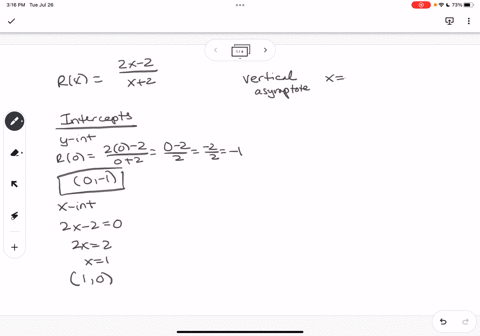 3:16 PM Tue Jul 26
73%
R(x) = 2x-2 / x+2
vertical asymptote x=
Intercepts
y-int
R(0) = 2(0)-2 / 0+2 = 0-2 / 2 = -2 / 2 = -1
(0,-1)
x-int
2x-2=0
2x=2
x=1
(1,0)